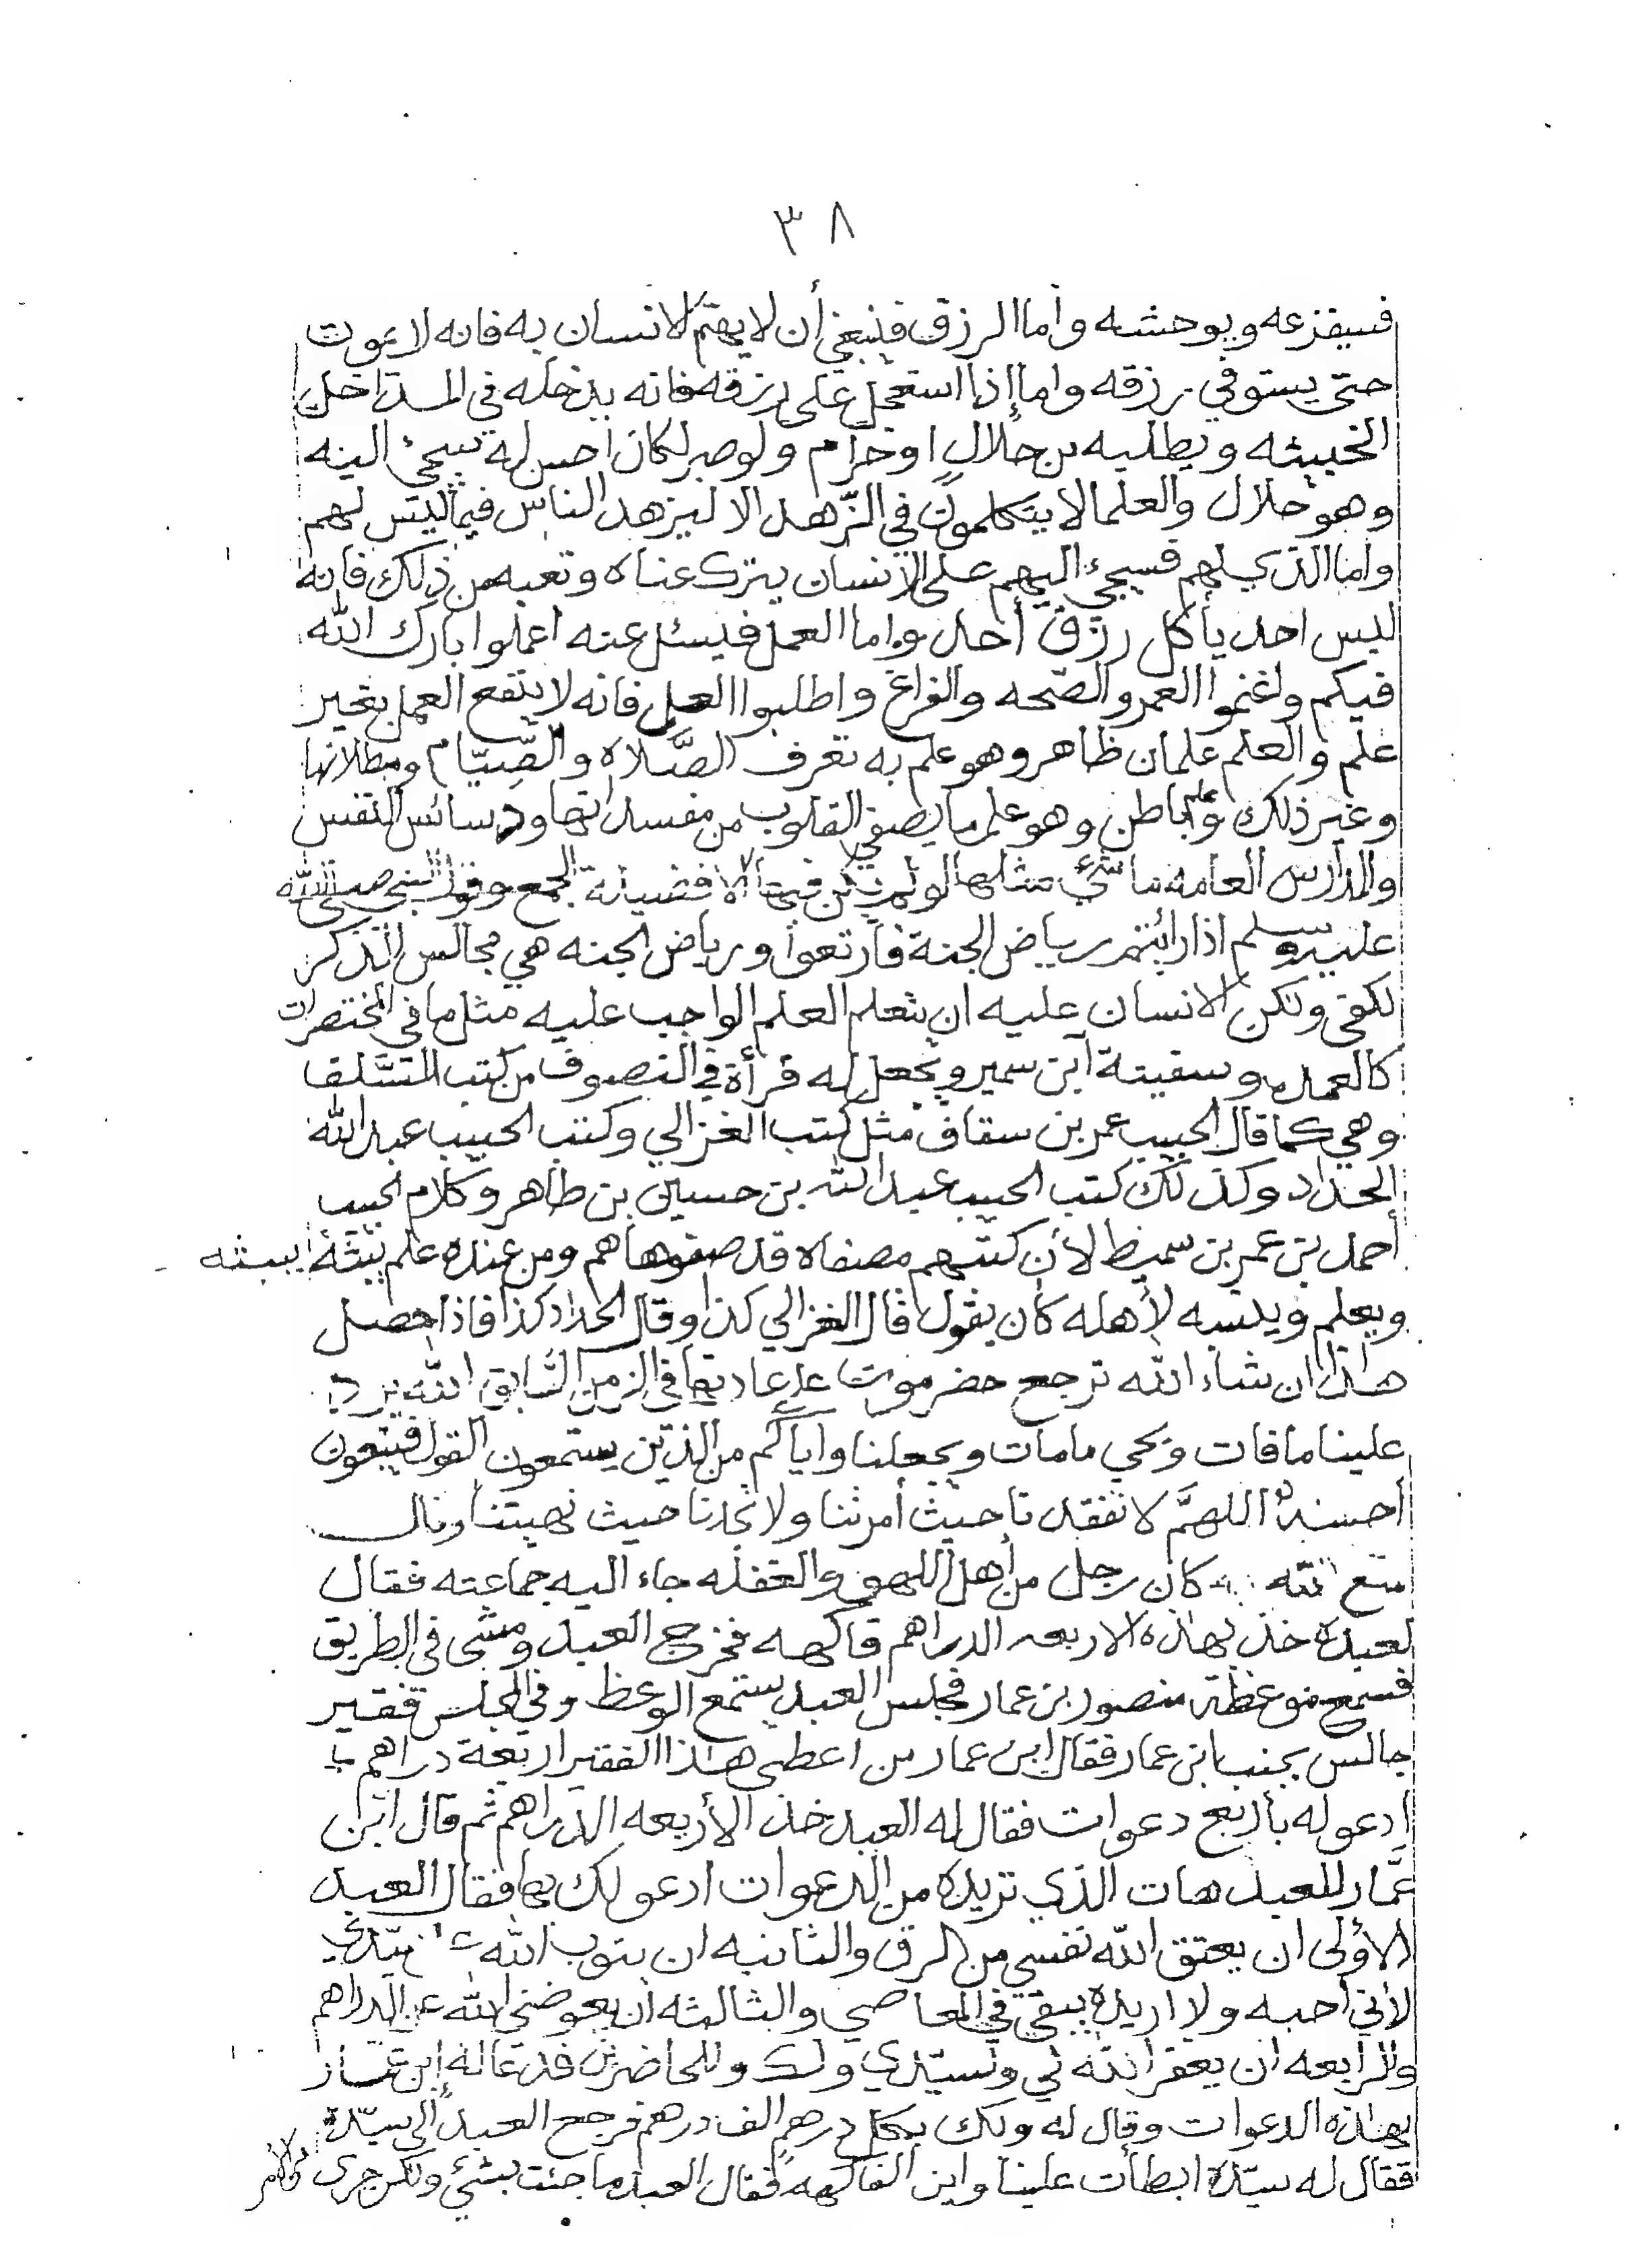 ٣٨
فسيفزعه ويوحشه واما الرزق فينبغي أن لا يهتم الانسان به فانه لا يموت
حتى يستوفي رزقه واما إذا استعجل على رزقه فانه يدخله في المداخل
الخبيثه ويطلبه من حلال او حرام ولو صبر لكان احسن له يسجيء اليه
وهو حلال والعلما لا يتكلمون في الزّهد الا ليزهد الناس فيما ليس لهم
واما الذي لهم فسيجيء اليهم على الانسان يترك عناه وتعبه من ذلك فانه
ليس احد يأكل رزق أحد واما العمل فيسئل عنه اعملوا بارك الله
فيكم واغنموا العمر والصّحه والفراغ واطلبوا العلم فانه لا ينفع العمل بغير
علم والعلم علمان ظاهر وهو علم به تعرف الصّلاه والصّيام ومبطلاتها
وغير ذلك وعلم باطن وهو علم ما يصفي القلوب من مفسداتها ودسائس النفس
والمدارس العامه ما شيء مثلها لو لم يكن فيها الا فضيلة الجمع وقول النبي صلى الله
عليه وسلم اذا رائيتم رياض الجنة فارتعوا ورياض الجنه هي مجالس الذكر
لكفى ولكن الانسان عليه ان يتعلم العلم الواجب عليه مثل ما في المختصرات
كالعمده وسفينة ابن سمير ويجعل له قرأة في التصوف من كتب السّلف
وهي كما قال الحبيب عمر بن سقاف مثل كتب الغزالي وكتب الحبيب عبد الله
الحداد وكذلك كتب الحبيب عبد الله بن حسين بن طاهر وكلام الحبيب
أحمد بن عمر بن سميط لأن كتبهم مصفاه قد صفوها هم ومن عنده علم يبثه يبثه
ويعلم ويدرسه لأهله كان يقول قال الغزالي كذا وقال الحداد كذا فاذا حصل
هذا ان شاء الله ترجع حضرموت على عادتها في الزمن السّابق الله يرد
علينا ما فات ويحي ما مات ويجعلنا واياكم من الذين يستمعون القول فيتبعون
أحسنه اللهمَّ لا تفقدنا حيث أمرتنا ولا تجدنا حيث نهيتنا وقال
متع الله به كان رجل من أهل اللهو والغفله جاء اليه جماعته فقال
لعبده خذ بهاذه الاربعه الدراهم فاكهه فخرج العبد ومشى في الطريق
فسمع موعظة منصور بن عمار فجلس العبد يستمع الوعظ وفي المجلس فقير
جالس بجنب ابن عمار فقال ابن عمار من اعطى هذا الفقير اربعة دراهم با
ادعو له بأربع دعوات فقال له العبد خذ الأربعه الدراهم ثم قال ابن
عمّار للعبد هات الذي تريده من الدعوات ادعو لك بها فقال العبد
الأولى ان يعتق الله نفسي من الرق والثانيه ان يتوب الله على سيّدي
لأني احبه ولا اريده يبقى في المعاصي والثالثه أن يعوضني الله عن الدراهم
والرابعه ان يغفر الله لي ولسيّدي ولك وللحاضرين فدعا له ابن عمار
بهاذه الدعوات وقال له ولك بكل درهم الف درهم فرجع العبد الى سيّده
فقال له سيّده ابطأت علينا واين الفاكهه فقال العبد ما جئت بشيء ولكن جرى من الامر